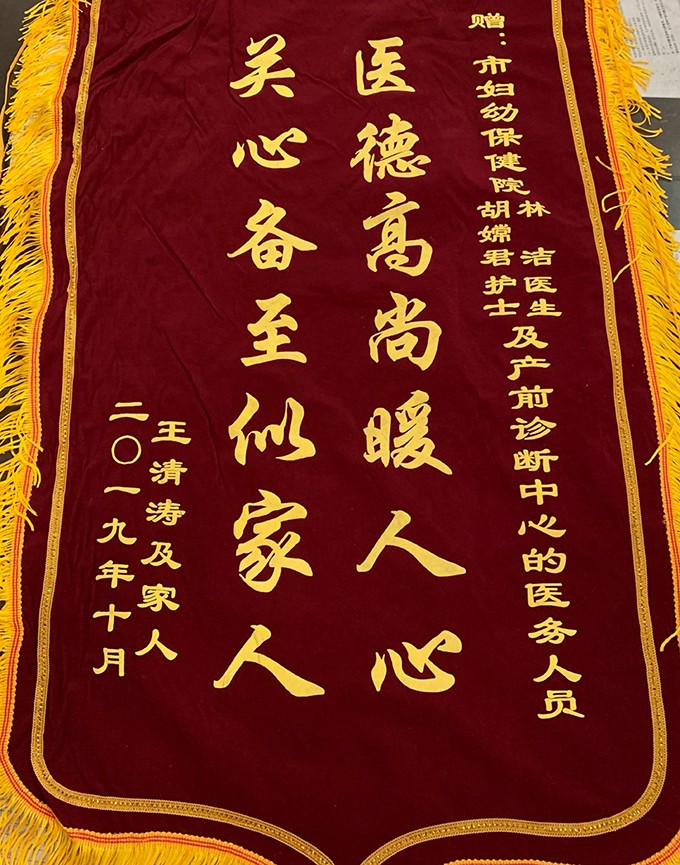 赠：市妇幼保健院林 洁医生
胡嫦君护士
及产前诊断中心的医务人员
医德高尚暖人心
关心备至似家人
王清涛及家人
二〇一九年十月